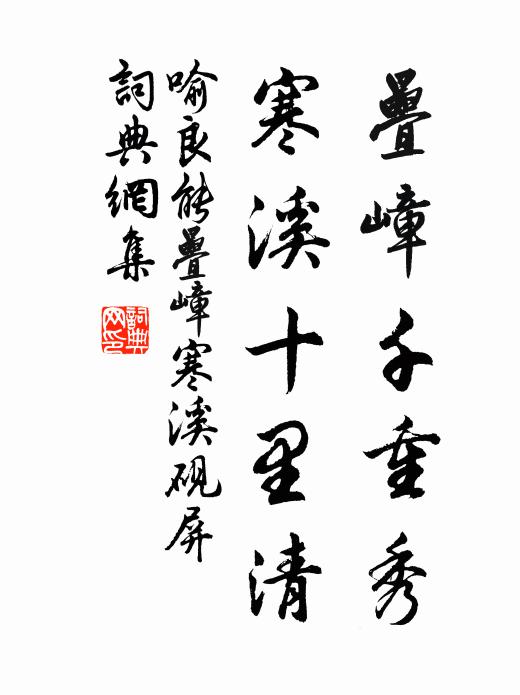 疊嶂千重秀
寒溪十里清
喻良能疊嶂寒溪硯屏
詞典網集
詞典
网印